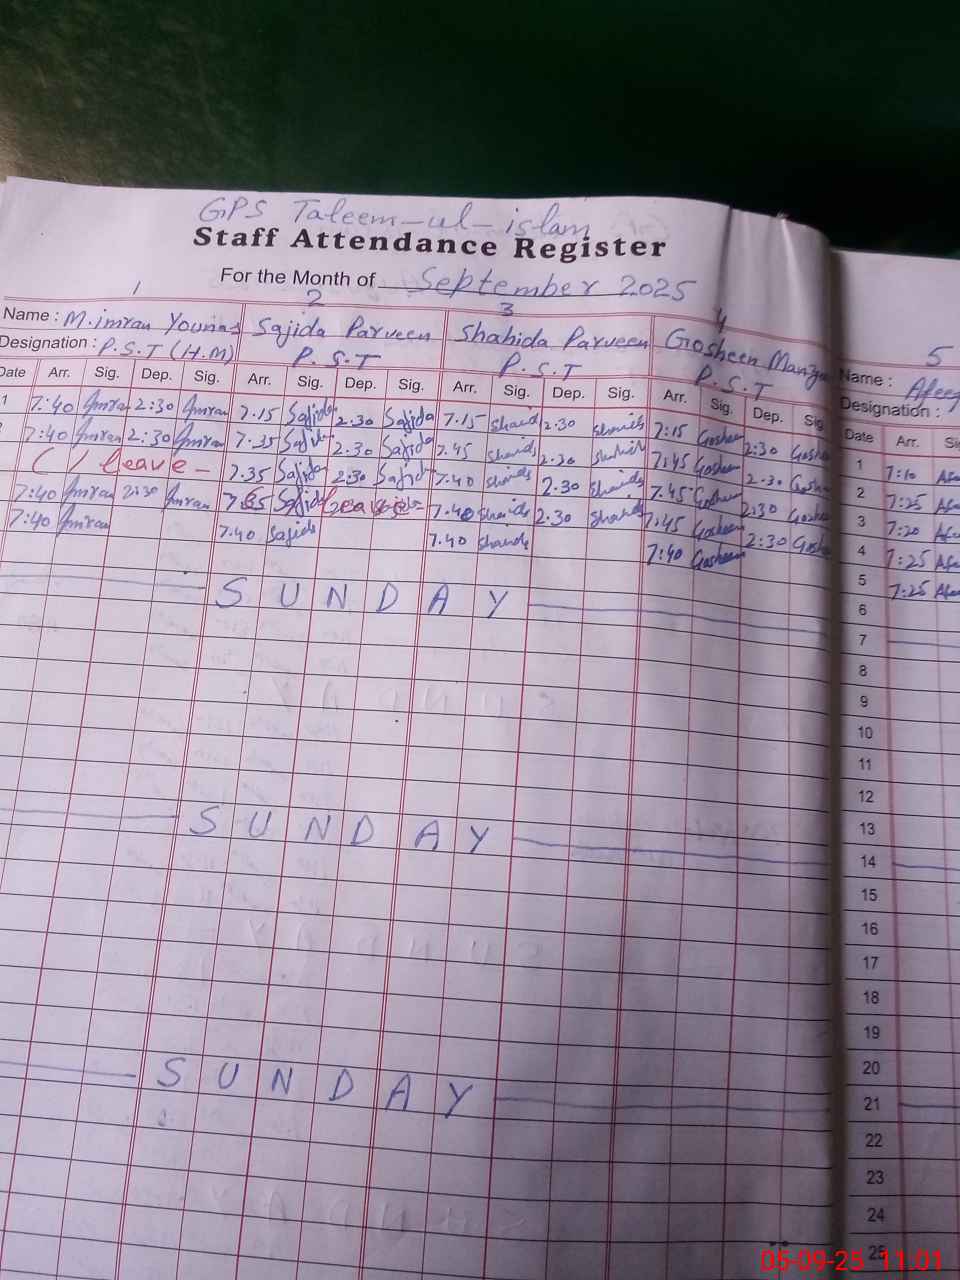 GPS Taleem-ul-islam
Staff Attendance Register
For the Month of September 2025
1 2 3 4 5
Name : M.imran Younas Sajida Parveen Shahida Parveen Gosheen Name :
Designation : P.S.T (H.M) P.S.T P.S.T P.S.T Designation :
Date Arr. Sig. Dep. Sig. Arr. Sig. Dep. Sig. Arr. Sig. Dep. Sig. Arr. Sig. Dep. Sig Date Arr.
1 7:40 Imran 2:30 Imran 7.15 Sajida 2.30 Sajida 7.15 2.30 7:15 Gosheen 2:30 1 7:10
7:40 Imran 2:30 Imran 7.35 Sajida 2.30 Sajida 7.45 2.30 7:45 Gosheen 2.30 2 7:25
C/leave - 7.35 Sajida 2.30 Sajida 7.40 2.30 7.45 Gosheen 2:30 3 7:20
7:40 Imran 2:30 Imran 7.35 Sajida leave 7.40 2.30 7:45 Gosheen 2:30 4 7:25
7:40 Imran 7.40 Sajida 7.40 7:40 Gosheen 5 7:25
6
SUNDAY 7
8
9
10
11
12
13
SUNDAY 14
15
16
17
18
19
20
SUNDAY 21
22
23
24
25
05-09-25 11:01